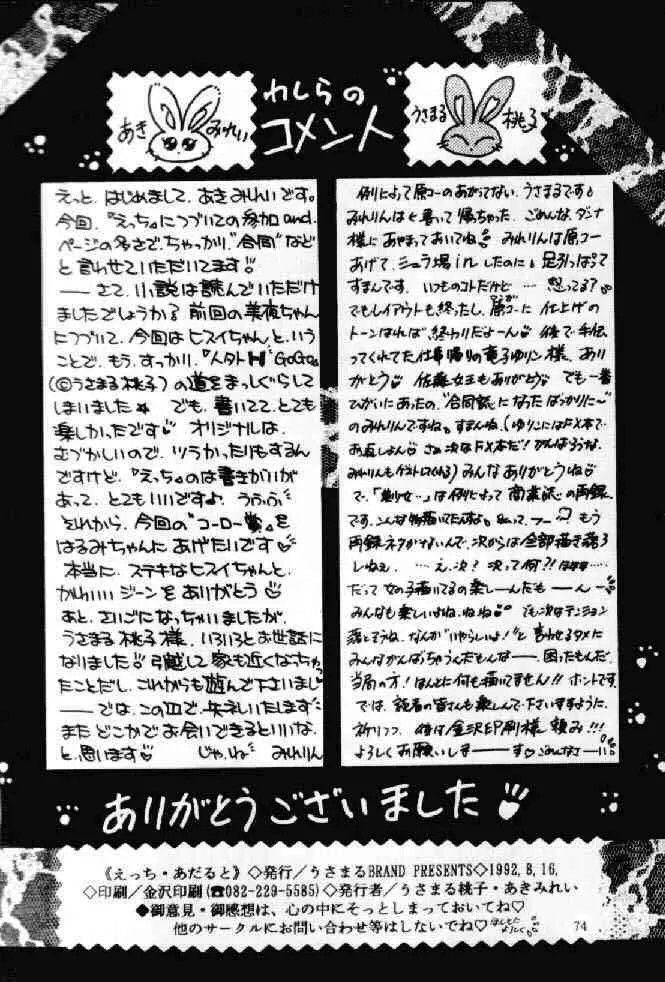 わしらの
コメント
あき みれい
うさまる 桃子
えっと、はじめまして、あきみれいです。
今回、『えっち』につづいての参加and.
ページの多さで、ちゃっかり、"合同"など
と言わせていただいてます!!
——さて、小説は読んでいただけ
ましたでしょうか? 前回の美夜ちゃん
につづいて、今回はヒスイちゃん、と、いう
ことで、もう、すっかり、『人タトH』GoGoo
(©うさまる桃子)の道をまっしぐらして
しまいました★ でも、書いてて、とても
楽しかったです♡ オリジナルは、
むづかしいので、ツラかったりもするん
ですけど、『えっち』のは書きがいが
あって、とてもいいです♪ うふふ
それから、今回の"コーロー賞"を
はるみちゃんにあげたいです♡
本当に、ステキなヒスイちゃんと、
かわいいジーンをありがとう♡
あと、さいごになっちゃいましたが、
うさまる桃子様、いろいろとお世話に
なりました♡引越しして家も近くなっちゃっ
たことだし、これからも遊んで下さいまし
——では、この辺で、失礼いたします
またどこかでお会いできるといいな、
と、思います♡ じゃ、ね みれりん
例によって原コーのあがってない、うさまるです
みれりんは書って帰ちゃった、ごめんな、ダンナ
様にあやまっておいてね♡ みれりんは原コー
あげて、シュラ場inしたのに、足引っぱって
すまんです。いつものコトだけど… 怒ってる?
でもレイアウトも終ったし、原コーに仕上げの
トーンはれば、終わりだよーん♡ 後で手伝
ってくれてた仕事帰りの竜子ゆリン様、あり
がとう♡ 佐藤女王もありがとう♡ でも一番
ひがいにあったの、"合同誌"になったばっかりに〜
のみれりんですね。すまんね、(ゆりこにはFX本で
お返しよん♡ さぁ次はFX本だ! がんばろうな、
みれりんもゲストしてくれる)みんなありがとうね♡
で、「…女…」は例によって商業誌の再録
です、こんな物描いてたんすよ。 もう
再録ネタがないんで、次からは全部描き下ろ
しねぇ、 …え、次? 次って何?!
だって女の子描いてるの楽しーんだもーんー
みんなも楽しいよね、ねね♡ でも次はテンション
落とそうね、なんか"いやらしいよ!"と言わせるタメに
みんながんばっちゃうんだもんなー— 困ったもんだ、
当局の方! ほんとに何も描いてません!! ホントです。
では、読者の皆さんも楽しんで下さいますように、
祈りつつ、後は金沢印刷様 頼み!!!
よろしくお願いしま————す♡ ごめんなさーい
ありがとうございました♡
《えっち・あだると》◇発行/うさまるBRAND PRESENTS◇1992,8,16,
◇印刷/金沢印刷(☎082-229-5585)◇発行者/うさまる桃子・あきみれい
●御意見・御感想は、心の中にそっとしまっておいてね♡
他のサークルにお問い合わせ等はしないでね♡
74